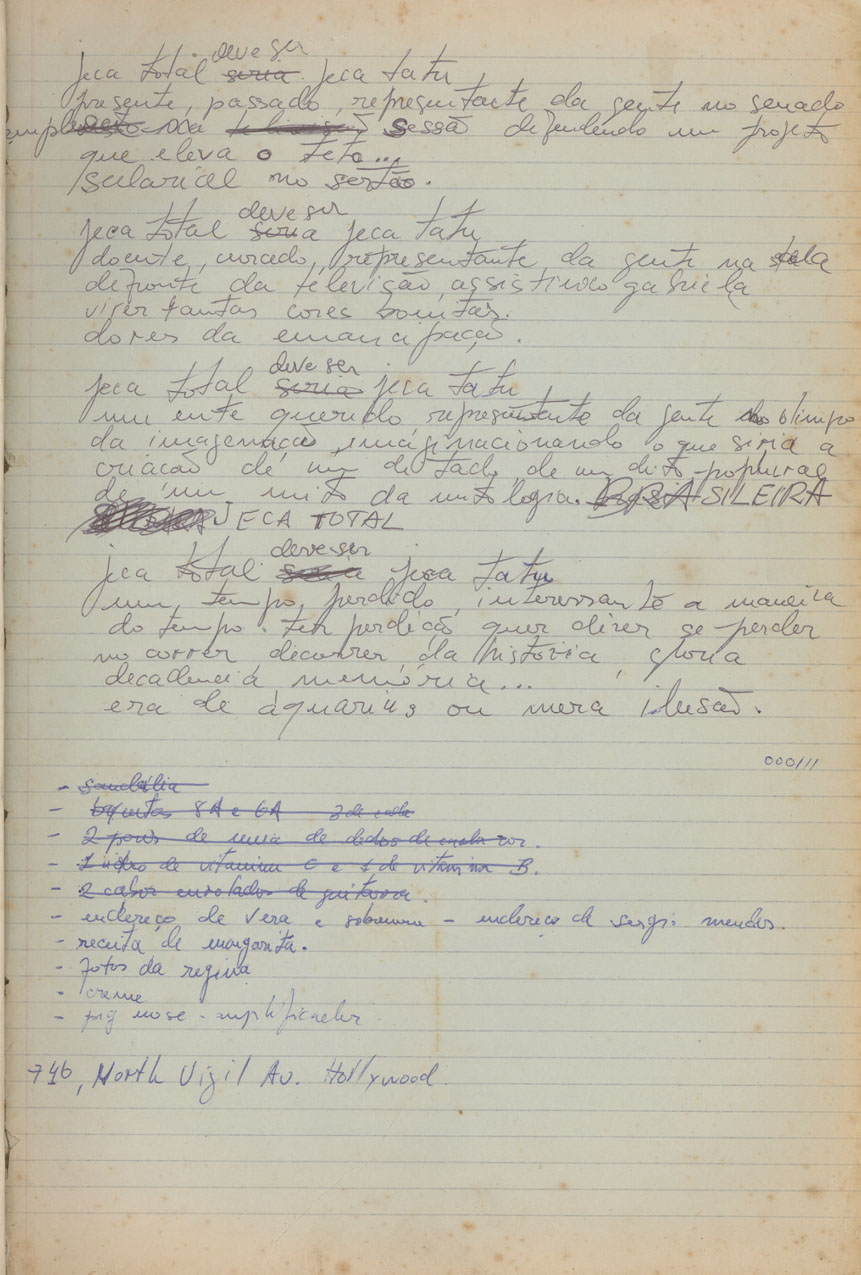 deve ser
jeca total seria jeca tatu
presente, passado, representante da gente no senado
em plena sessão defendendo um projeto
que eleva o teto...
salarial no sertão.
deve ser
jeca total seria jeca tatu
doente, curado, representante da gente na sala
defronte da televisão, assistindo gabriela
viver tantas cores bonitas.
dores da emancipação.
deve ser
jeca total seria jeca tatu
um ente querido representante da gente no olimpo
da imagenação, imaginacionando o que seria a
criação de um ditado de um dito popular
de um mito da mitologia. BRASILEIRA
JECA TOTAL
deve ser
jeca total seria jeca tatu
um, tempo, perdido, interessante a maneira
do tempo. ter perdição quer dizer se perder
no correr, decorrer, da história, gloria
decadencia, memória...
era de áquarius ou mera ilusão.
000///
- sandália
- baquetas 8A e 6A 3 de cada
- 2 pares de meia de dedos de cada cor.
- 1 vidro de vitamina C e 1 de vitamina B.
- 2 cabos enrolados de guitarra.
- endereço de Vera e - endereço de sergio mendes.
- receita de margarita.
- fotos da regina
- creme
- pig nose - amplificador
746, North Vigil Av. Hollywood.